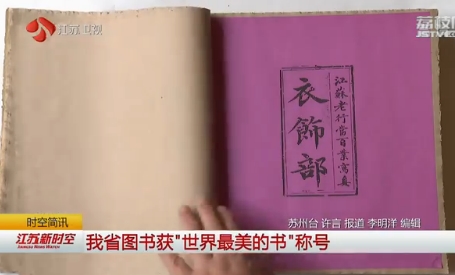 江苏卫视
荔枝
JSTV.C
江蘇老行當百業寫真
衣飾部
苏州台 许言 报道 李明洋 编辑
时空简讯
江苏新时空
我省图书获"世界最美的书"称号